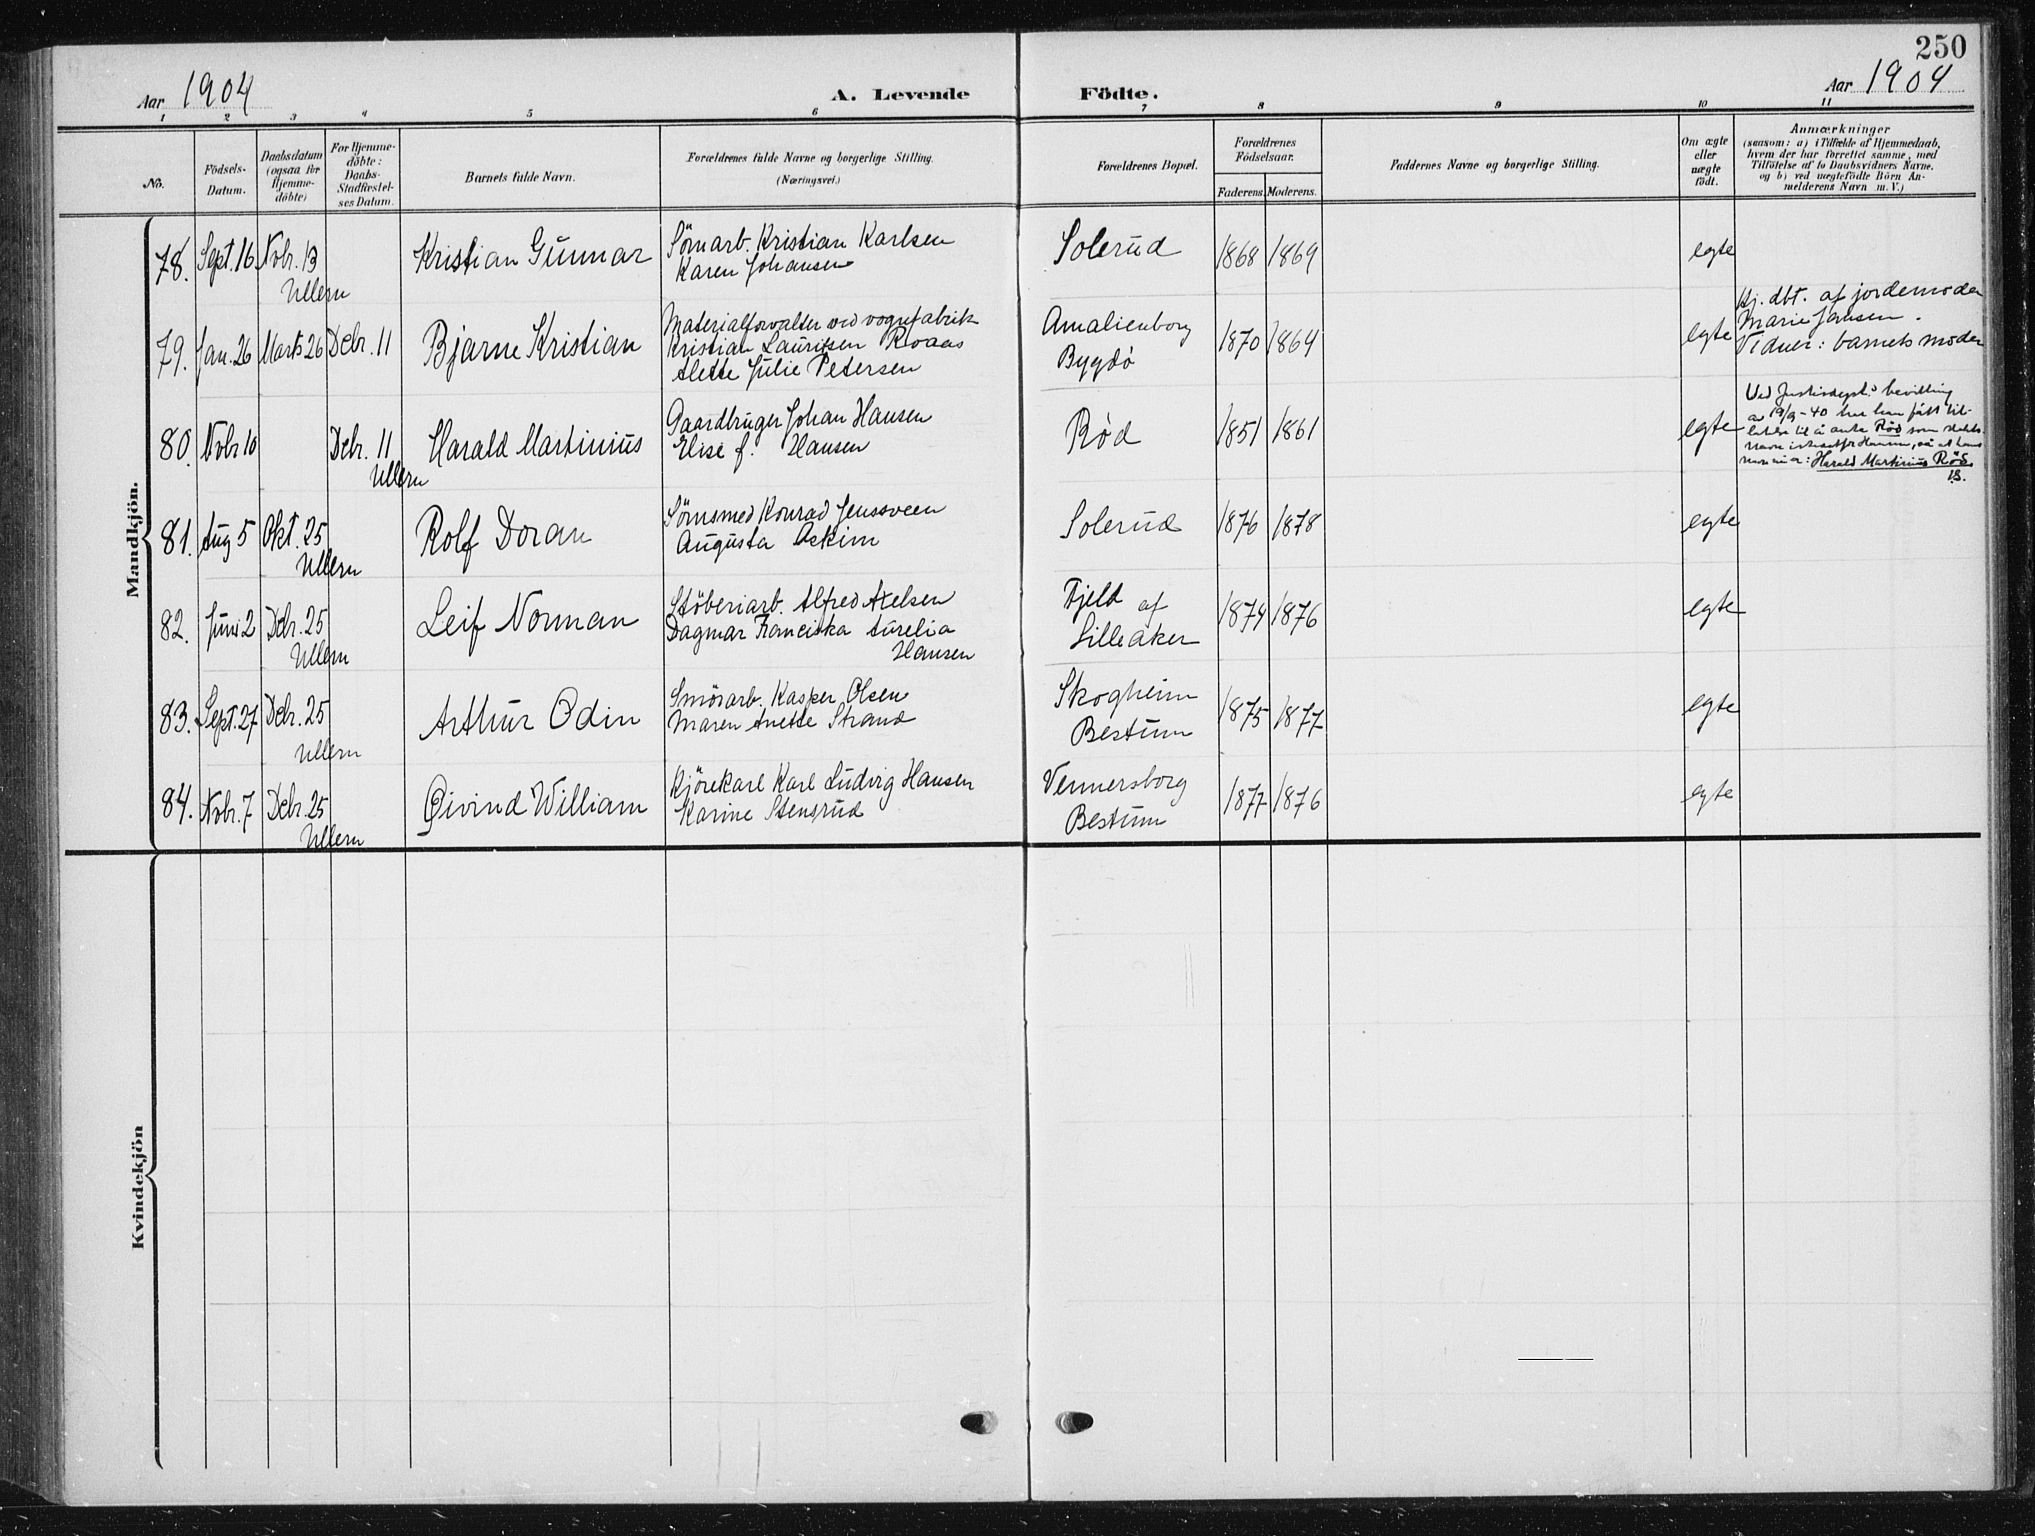 250
Aar 1904
A. Levende Fødte.
Aar 1904
1 2 3 4 5 6 7 8 9 10 11
No.
Födsels-
Datum.
Daabsdatum
(ogsaa for
Hjemme-
döbte)
For Hjemme-
döbte:
Daabs-
Stadfæstel-
ses Datum.
Barnets fulde Navn.
Forældrenes fulde Navne og borgerlige Stilling.
(Næringsvei.)
Forældrenes Bopæl.
Forældrenes
Födselsaar.
Faderens. Moderens.
Faddernes Navne og borgerlige Stilling.
Om ægte
eller
uægte
födt.
Anmærkninger
(saasom: a) i Tilfælde af Hjemmedaab,
hvem der har forrettet samme, med
Tilföielse af to Daabsvidners Navne.
og b) ved uægtefödte Börn An-
melderens Navn m. V.)
Mandkjön.
78. Sept. 16 Nobr. 13
Ullern
Kristian Gunnar
Sömarb. Kristian Karlsen
Karen Johansen
Solerud
1868 1869
egte
79. Jan. 26 Marts 26 Debr. 11
Bjarne Kristian
Materialforvalter ved vognfabrik
Kristian Lauritsen Roaas
Alette Julie Petersen
Amalienborg
Bygdö
1870 1864
egte
Hj. dbt. af jordemoder
Marie Jansen.
Vidner: barnets moder
80. Nobr 10 Debr. 11
Ullern
Harald Martinius
Gaardbruger Johan Hansen
Elise f. Hansen
Röd
1851 1861
egte
Ved Justisdept.s bevilling
av 19/9-40 har han fått til-
latelse til å anta Röd som slekts-
navn istedetfor Hansen, så at hans
navn nu er: Harald Martinius Röd.
81. Aug 5 Okt. 25
Ullern
Rolf Doran
Sömsmed Konrad Jenssveen
Augusta Askim
Solerud
1876 1878
egte
82. Juni 2 Debr. 25
Ullern
Leif Norman
Stöberiarb. Alfred Axelsen
Dagmar Franciska Aurelia
Hansen
Fjeld af
Lilleaker
1874 1876
egte
83. Sept. 27 Debr. 25
Ullern
Arthur Odin
Smörarb. Kasper Olsen
Maren Anette Strand
Skogheim
Bestum
1875 1877
egte
84. Nobr. 7 Debr. 25
Ullern
Öivind William
Kjörekarl Karl Ludvig Hansen
Karine Stensrud
Vennersborg
Bestum
1877 1876
egte
Kvindekjön